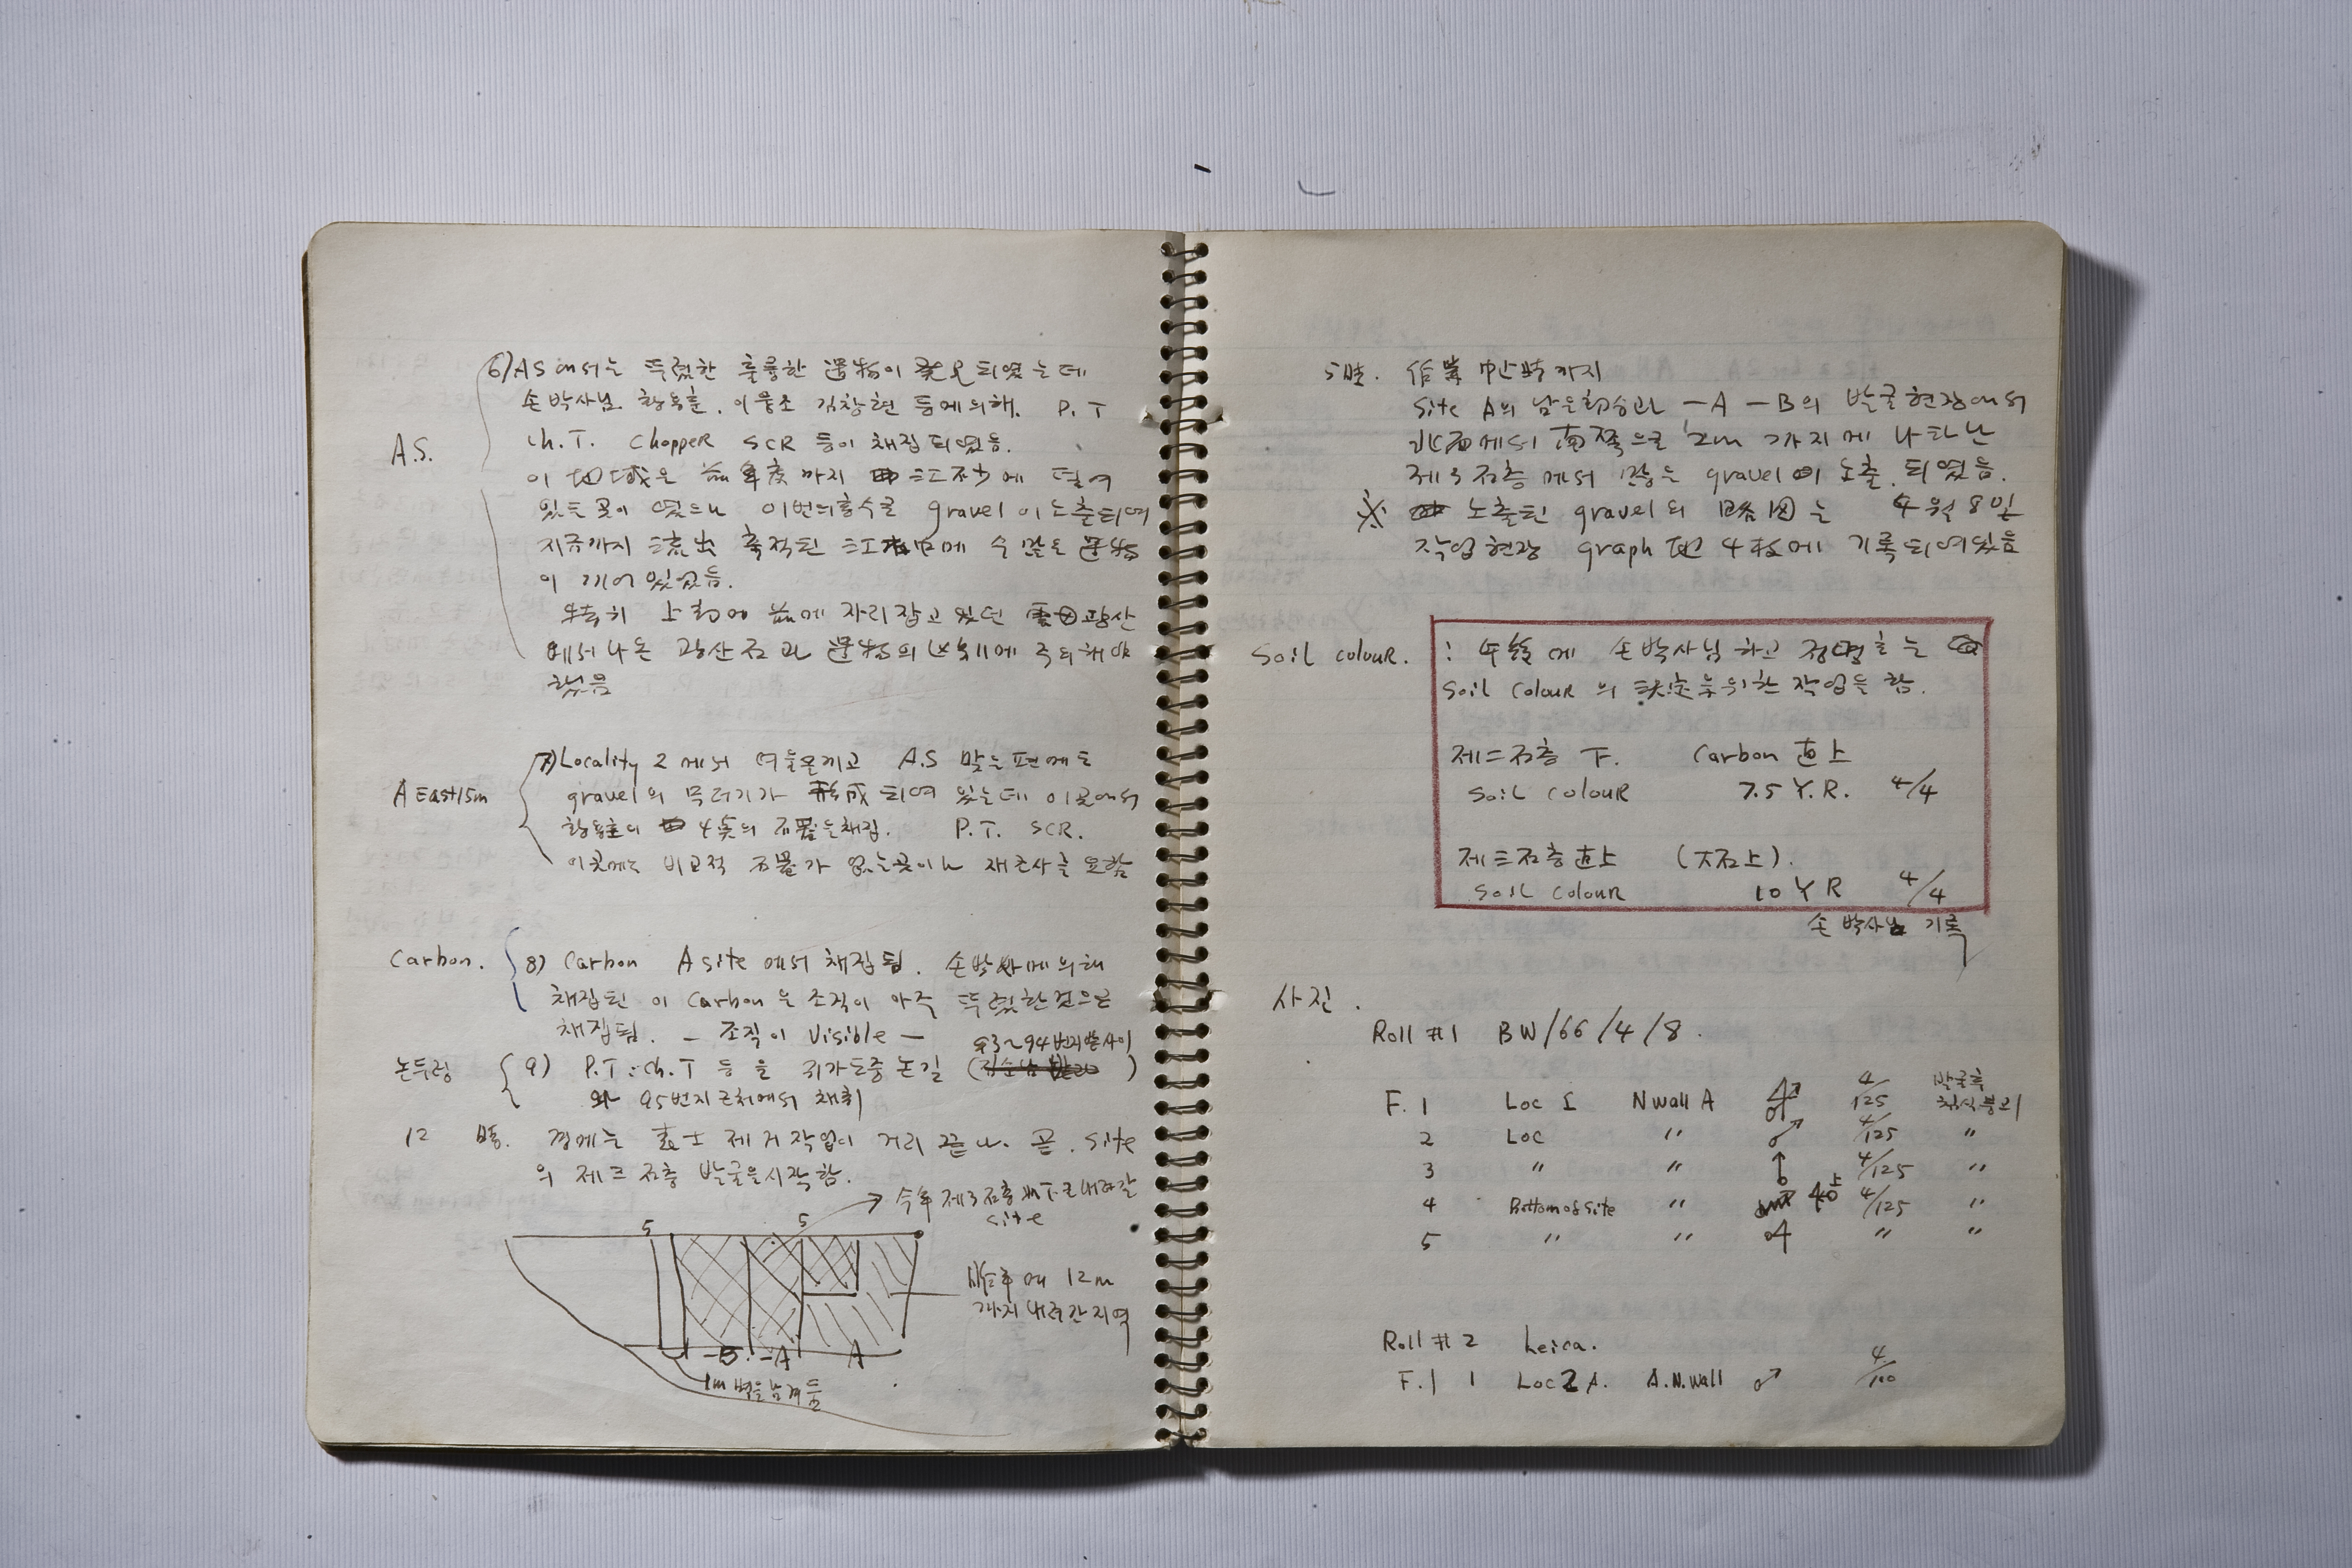 A.S.
6) AS에서는 뚜렸한 훌륭한 遺物이 発見되였는데
손박사님. 황용훈. 이융조 김창현 등에의해. P.T
Ch.T. ChoppeR SCR 등이 채집되였음.
이 地域은 前年度까지 江砂에 덮여
있든 곳이 였으나 이번의홍수로 gravel이 노출되여
지금까지 流出 축적된 中에 수많은 遺物
이 끼어있었음.
特히 上部에 前에 자리잡고 있던 雲母광산
에서 나온 광산石과 遺物의 에 주의해야
했음
A East 15m
7) Locality 2에서 여울은끼고 A.S 맞는편에도
gravel의 무더기가 形成되여 있는데 이곳에서
4点의 石器을채집. P.T. SCR.
이곳에는 비교적 가 없는곳이나 재조사를 요함
Carbon.
8) Carbon A site에서 채집됨. 손박사에의해
채집된 이 Carbon은 조직이 아주 뚜렸한것으로
채집됨. — 조직이 Visible —
93~94번지논사이
논두렁
9) P.T. Ch.T 등을 귀가도중 논길 ( )
와 95번지근처에서 채취
12 時. 경에는 表土 제거작업이 거의 끝나. 곧. site
의 제三石층 발굴을시작함.
今年 제3石층 下로 내려갈
site
5 5
昨年에 12m
까지 내려간지역
-B. -A A
1m 벽을남겨둠
5時. 作業中止時까지
Site A의 남은部分과 -A -B의 발굴현장에서
北面에서 南쪽으로 12m 까지에 나타난
제3石층에서 많은 gravel이 노출.되였음.
※ 노출된 gravel의 略図는 4월8일
작업현장 graph 4枚에 기록되여있음
Soil colouR.
: 午後에 손박사님하고 정명호는
Soil ColouR의 決定을위한 작업을 함.
제二石층 下. Carbon 直上
Soil ColouR 7.5 Y.R. 4/4
제三石층直上 (大石上).
Soil ColouR 10 Y R 4/4
손박사님 기록
사진.
Roll #1 BW/66/4/8.
F. 1 Loc I N wall A 4/125 발굴측
2 Loc 〃 4/125 〃
3 〃 〃 4/125 〃
4 Bottom of site 〃 4/125 〃
5 〃 〃 〃 〃
Roll #2 Leica.
F. 1 1 Loc 2 A. A.N.wall 4/100